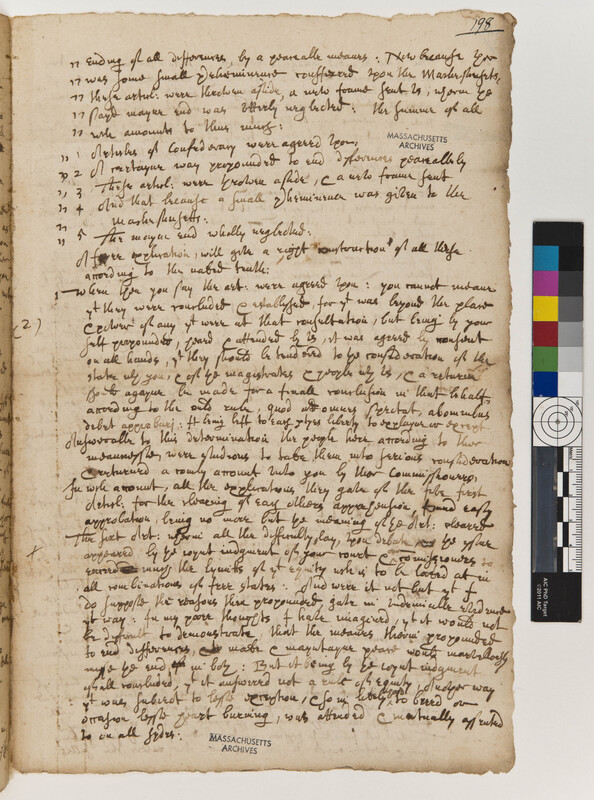 198
" ending of all differences, by a peaceable meanes: Now because ther
" was some small preheminence conferred upon the Masterchusets,
" these artic: were throwen aside, a new frame sent us, wherin the
" sayd mayne end was utterly neglected: the summe of all
wch amounts to thus much:
" 1 Articles of Confederacy were agreed upon,
" 2 A certayne way propounded to end differences peaceably
" 3 These articl: were throwen aside, & a new frame sent
" 4 And that because a small preheminence was given to the
Masterchusetts:
" 5 The mayne end wholly neglected:
A free explication, will give a right construction of all these
according to the naked truth:
When you say the art: were agreed upon: you cannot meane
yt they were concluded & established, for yt was beyond the place
(2)
& power of any yt were at that consultation, but being by your
self propounded, heard & attended by us, it was agreed by consent
on all hands, yt they should be tendered to the consideration of the
state with you, & of the magistrates & people with us, & a returne
agayne be made for a finall conclusion in that behalf,
according to the old rule, quod ad omnes spectat, ab omnibus
debet approbari: It being left to each partyes liberty to explayne or except
Answerable to this determination the people here according to ther
meannesse, were studious to take them into serious consideration
& returned a ready account unto you by ther Commissioners;
In wch account, all the explications they gave of the five first
Articl: for the clearing of each others apprehension, found easy
approbation, being no more but the meaning of the Art: cleared
The sixt Art: wherin all the difficulty lay, upon debate the issue
appeared by the joynt judgment of your court & commissioners to
exceed much the limits of yt equity wch is to be looked at in
all combinations of free states: And were it not but yt I
do suppose the reasons then propounded, gave in undeniable evidence
yt way: In my poore thoughts I have imagined, yt it would not
be difficult to demonstrate, that the meanes therin propounded
to end differences, & make & mayntayne peace would marvelously
misse the end, in both: But it being by the joynt judgment
of all concluded, yt it answered not a rule of equity, Another way
yt was subject to lesse exception, & so in likelyhood to breed or
occasion lesse heart burning, was attended & mutually assented
to on all sydes:
MASSACHUSETTS
ARCHIVES
MASSACHUSETTS
ARCHIVES
AIC PhD Target
©2011 AIC